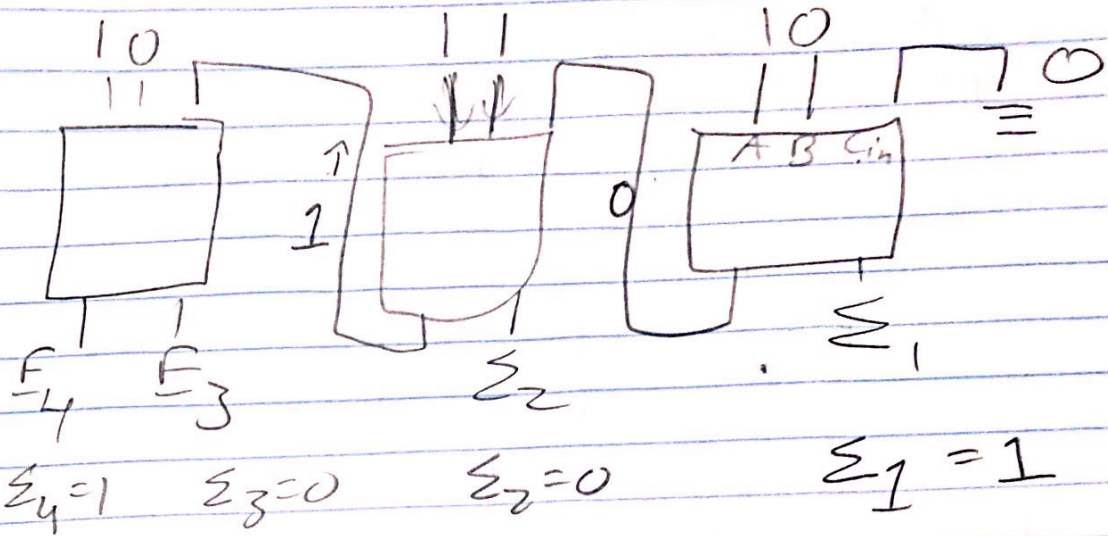 1 0 1 1 1 0 0
A B Cin
1 0
Σ4 Σ3 Σ2 Σ1
Σ4=1 Σ3=0 Σ2=0 Σ1=1